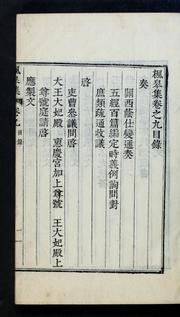 楓皐集卷之九目錄
奏
關西蔭仕變通奏
五經百篇編定時義例詢問對
應類疏通收議
啓
吏曹叅議問啓
大王大妃殿 惠慶宮加上尊號 王大妃殿上
尊號庭請啓
應製文
楓皐集 卷之九 目錄